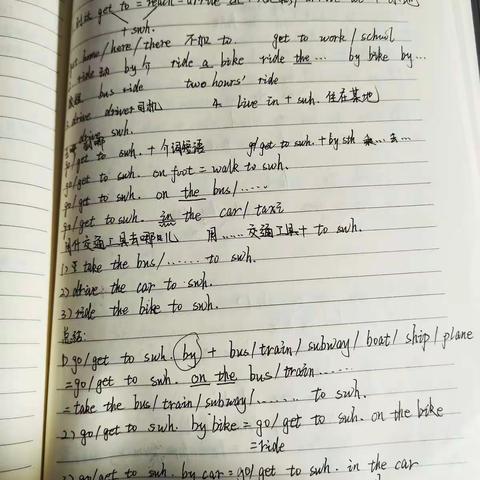 get to = reach = arrive at
+ swh.
home/here/there 不加 to. get to work / school
ride 动 by 介 ride a bike ride the... by bike by...
bus ride two hours' ride
3. drive driver 司机 4. live in + swh. 住在某地
go/get to swh. + 介词短语 go/get to swh. + by sth 乘...去...
go/get to swh. on foot = walk to swh.
go/get to swh. on the bus/......
go/get to swh. in the car/taxi
用什交通工具去哪儿 用......交通工具+ to swh.
1) take the bus/...... to swh.
2) drive the car to swh.
3) ride the bike to swh.
总结:
1) go/get to swh. by + bus/train/subway/boat/ship/plane
=go/get to swh. on the bus/train......
=take the bus/train/subway/...... to swh.
2) go/get to swh. by bike = go/get to swh. on the bike
=ride
3) go/get to swh. by car = go/get to swh. in the car